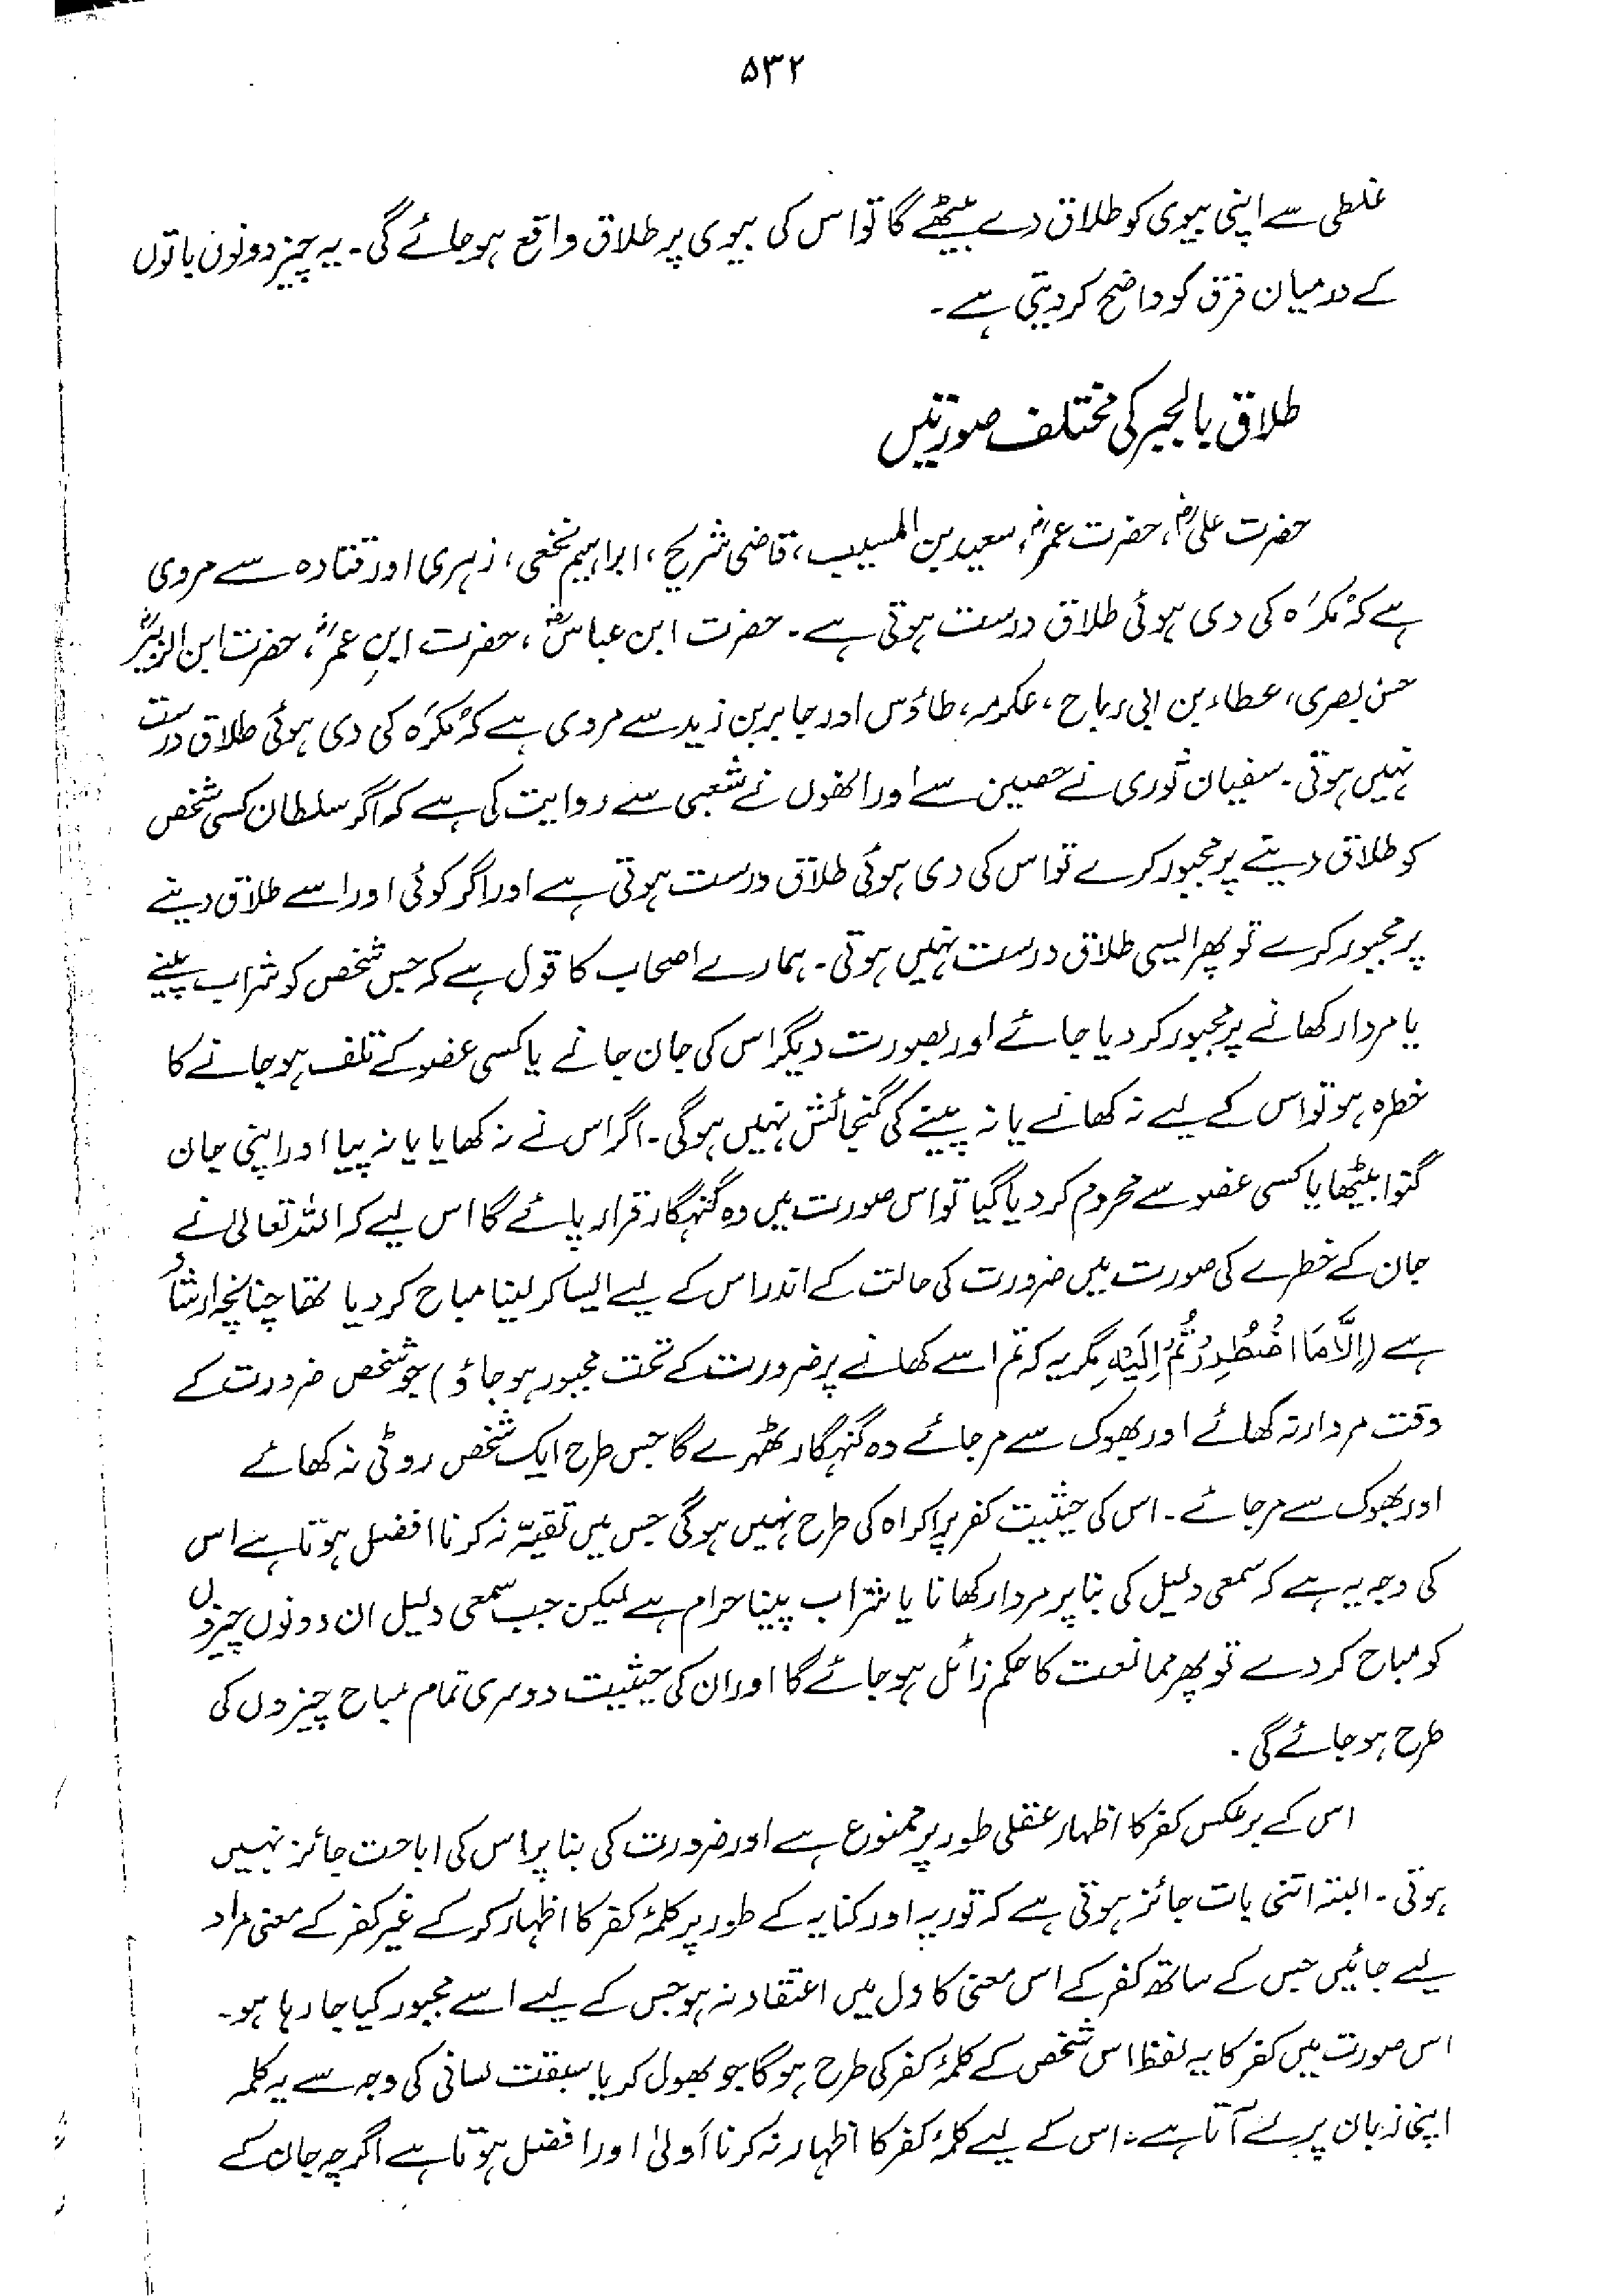 ۵۳۲
غلطی سے اپنی بیوی کو طلاق دے بیٹھے گا تو اس کی بیوی پر طلاق واقع ہو جائے گی۔ یہ چیز دونوں باتوں
کے درمیان فرق کو واضح کر دیتی ہے۔
طلاق بالجبر کی مختلف صورتیں
حضرت علیؓ، حضرت عمرؓ، سعید بن المسیب، قاضی شریح، ابراہیم نخعی، زہری اور قتادہ سے مروی
ہے کہ مُکرَہ کی دی ہوئی طلاق درست ہوتی ہے۔ حضرت ابن عباسؓ، حضرت ابنِ عمرؓ، حضرت ابن الزبیرؓ
حسن بصری، عطاء بن ابی رباح، عکرمہ، طاؤس اور جابر بن زید سے مروی ہے کہ مُکرَہ کی دی ہوئی طلاق درست
نہیں ہوتی۔ سفیان ثوری نے حصین سے اور انھوں نے شعبی سے روایت کی ہے کہ اگر سلطان کسی شخص
کو طلاق دینے پر مجبور کرے تو اس کی دی ہوئی طلاق درست ہوتی ہے اور اگر کوئی اور اسے طلاق دینے
پر مجبور کرے تو پھر ایسی طلاق درست نہیں ہوتی۔ ہمارے اصحاب کا قول ہے کہ جس شخص کو شراب پینے
یا مردار کھانے پر مجبور کر دیا جائے اور بصورت دیگر اس کی جان جانے یا کسی عضو کے تلف ہو جانے کا
خطرہ ہو تو اس کے لیے نہ کھانے یا نہ پینے کی گنجائش نہیں ہوگی۔ اگر اس نے نہ کھایا یا نہ پیا اور اپنی جان
گنوا بیٹھا یا کسی عضو سے محروم کر دیا گیا تو اس صورت میں وہ گنہگار قرار پائے گا اس لیے کہ اللہ تعالیٰ نے
جان کے خطرے کی صورت میں ضرورت کی حالت کے اندر اس کے لیے ایسا کر لینا مباح کر دیا تھا چنانچہ ارشاد
ہے (اِلَّا مَا اضْطُرِرْتُمْ اِلَیْہِ مگر یہ کہ تم اسے کھانے پر ضرورت کے تحت مجبور ہو جاؤ) جو شخص ضرورت کے
وقت مردار نہ کھائے اور بھوک سے مر جائے وہ گنہگار ٹھہرے گا جس طرح ایک شخص روٹی نہ کھائے
اور بھوک سے مر جائے۔ اس کی حیثیت کفر پر اکراہ کی طرح نہیں ہوگی جس میں تقیّہ نہ کرنا افضل ہوتا ہے اس
کی وجہ یہ ہے کہ سمعی دلیل کی بنا پر مردار کھانا یا شراب پینا حرام ہے لیکن جب سمعی دلیل ان دونوں چیزوں
کو مباح کر دے تو پھر ممانعت کا حکم زائل ہو جائے گا اور ان کی حیثیت دوسری تمام مباح چیزوں کی
طرح ہو جائے گی۔
اس کے برعکس کفر کا اظہار عقلی طور پر ممنوع ہے اور ضرورت کی بنا پر اس کی اباحت جائز نہیں
ہوتی۔ البتہ اتنی بات جائز ہوتی ہے کہ توریہ اور کنایہ کے طور پر کلمۂ کفر کا اظہار کر کے غیر کفر کے معنی مراد
لیے جائیں جس کے ساتھ کفر کے اس معنی کا دل میں اعتقاد نہ ہو جس کے لیے اسے مجبور کیا جا رہا ہو۔
اس صورت میں کفر کا یہ لفظ اس شخص کے کلمۂ کفر کی طرح ہوگا جو بھول کر یا سبقت لسانی کی وجہ سے یہ کلمہ
اپنی زبان پر لے آتا ہے۔ اس کے لیے کلمۂ کفر کا اظہار نہ کرنا اَولیٰ اور افضل ہوتا ہے اگرچہ جان کے